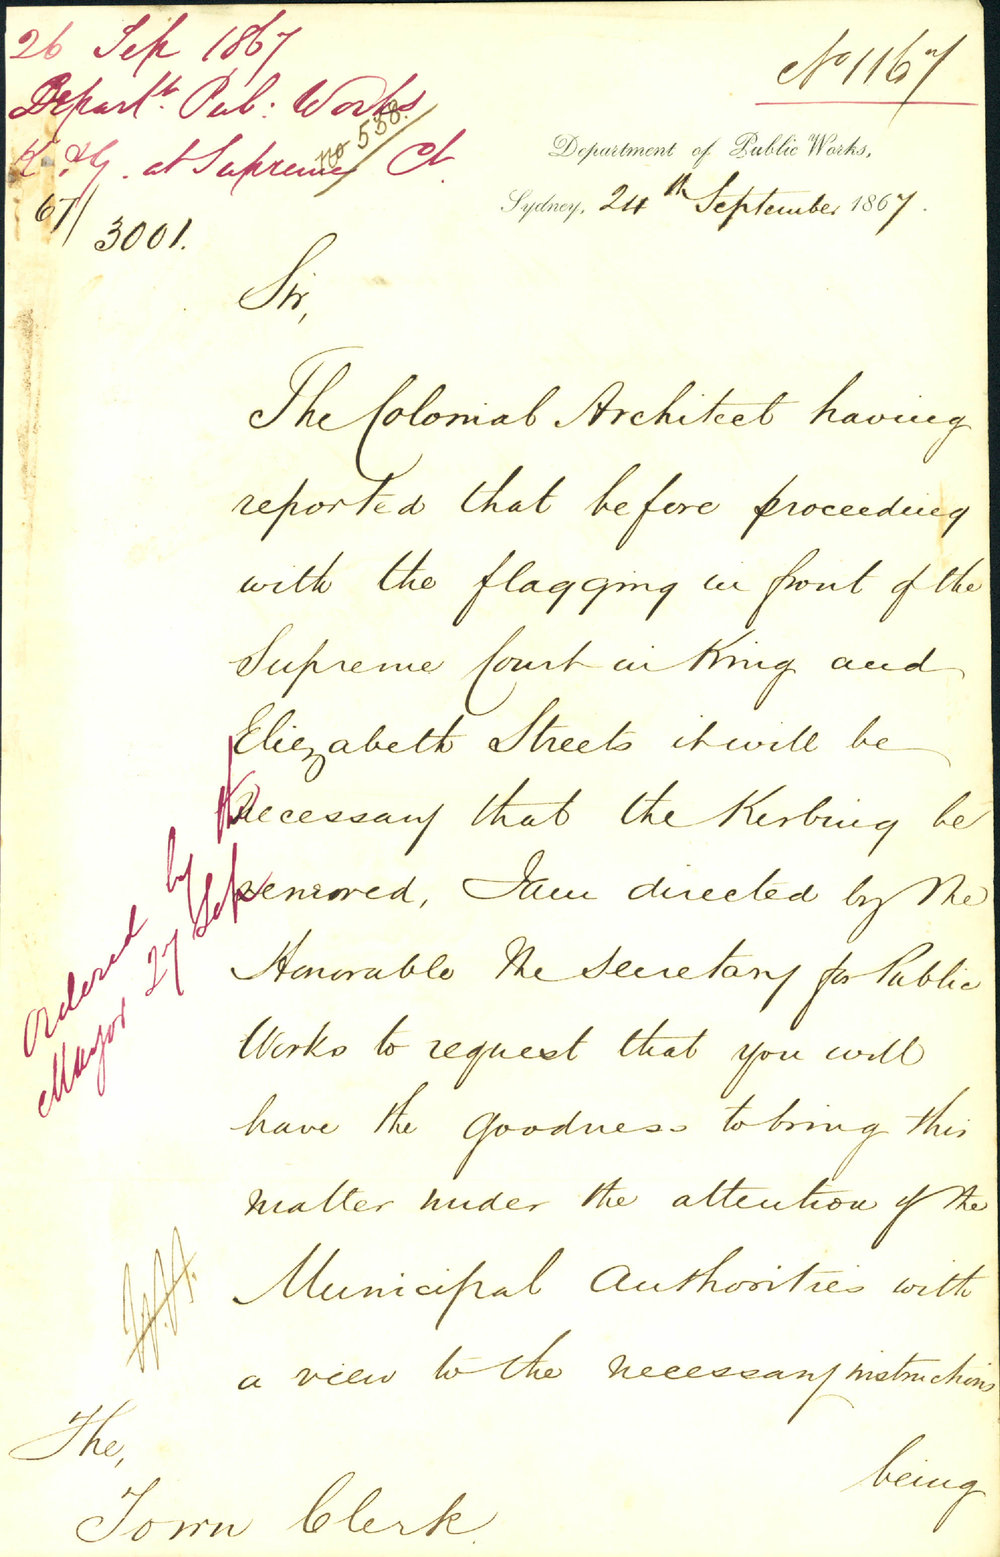 26 Sep 1867
Depart.t Pub: Works
K. & G. at Supreme Ct.
no 538.
67/
3001.
No 1167
Department of Public Works,
Sydney, 24th September 1867.
Sir,
The Colonial Architect having
reported that before proceeding
with the flagging in front of the
Supreme Court in King and
Elizabeth Streets it will be
necessary that the Kerbing be
removed, I am directed by the
Honorable the Secretary for Public
Works to request that you will
have the goodness to bring this
matter under the attention of the
Municipal Authorities with
a view to the necessary instructions
being
Ordered by the
Mayor 27 Sep
The,
Town Clerk.